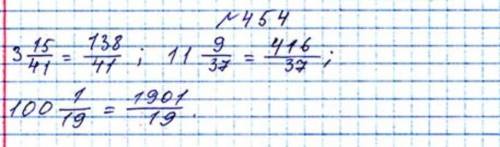 №454
3 15/41 = 138/41 ; 11 9/37 = 416/37 ;
100 1/19 = 1901/19.